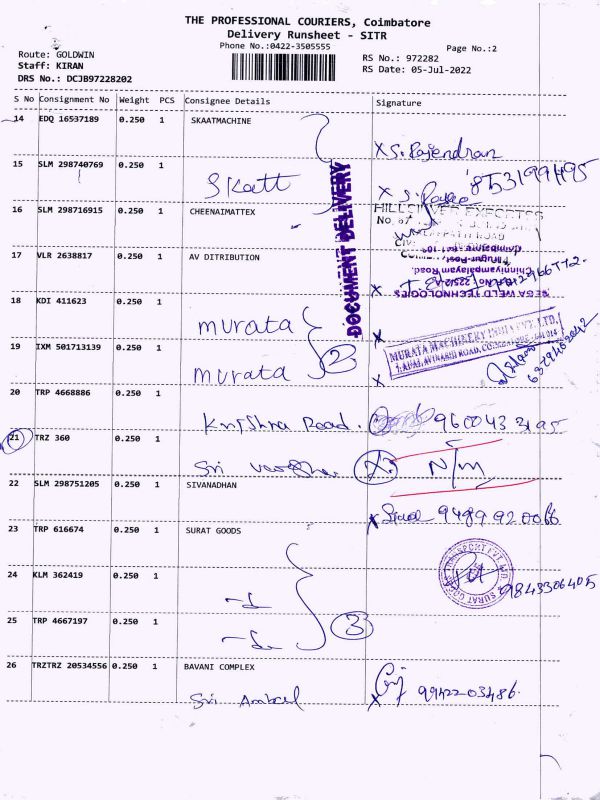 THE PROFESSIONAL COURIERS, Coimbatore
Delivery Runsheet - SITR
Phone No.:0422-3505555
Page No.:2
Route: GOLDWIN
Staff: KIRAN
DRS No.: DCJB97228202
RS No.: 972282
RS Date: 05-Jul-2022
S No Consignment No Weight PCS Consignee Details Signature
14 EDQ 16537189 0.250 1 SKAATMACHINE
X S. Rajendran
15 SLM 298740769 0.250 1
Skatt
X 8531991195
DOCUMENT DELIVERY
16 SLM 298716915 0.250 1 CHEENAIMATTEX
17 VLR 2638817 0.250 1 AV DITRIBUTION
Chinniyampalayam Road,
MEGA WELD TECHNOLOGIES
18 KDI 411623 0.250 1
murata
X
MURATA MACHINERY INDIA PVT. LTD.,
19 IXM 501713139 0.250 1
murata 2
X
6379402042
20 TRP 4668886 0.250 1
Krishna Road. 9600433195
21 TRZ 360 0.250 1
Sri N/m
22 SLM 298751205 0.250 1 SIVANADHAN
X 9489920066
23 TRP 616674 0.250 1 SURAT GOODS
24 KLM 362419 0.250 1
9843306405
25 TRP 4667197 0.250 1
3
26 TRZTRZ 20534556 0.250 1 BAVANI COMPLEX
Sri
X 9942203486.